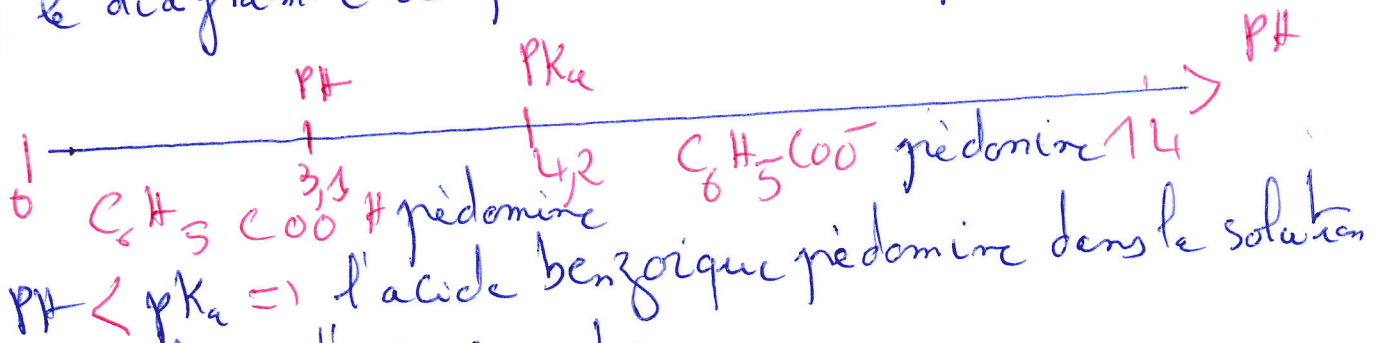 le diagramme
PH PKa PH
0 3,1 4,2 C6H5COO- prédomine 14
C6H5COOH prédomine
PH < pKa => l'acide benzoïque prédomine dans la solution